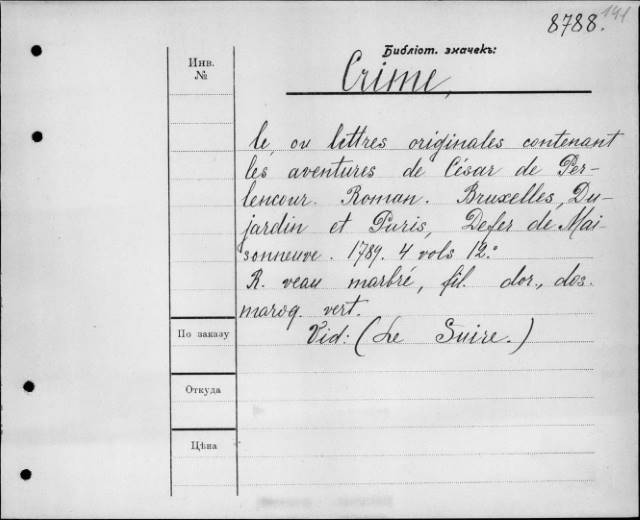 141
8788.
Библіот. значекъ:
Инв.
№
Crime,
le, ou lettres originales contenant
les aventures de César de Per-
lencour. Roman. Bruxelles, Du-
jardin et Paris, Defer de Mai-
sonneuve. 1789. 4 vols 12.º
R. veau marbré, fil. dor., dos.
maroq. vert.
По заказу
Vid: (Le Suire.)
Откуда
Цѣна